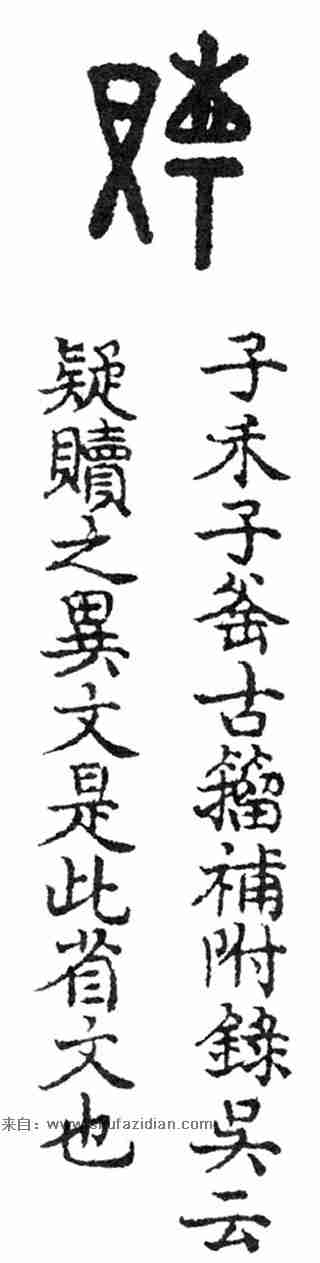 子禾子釜古籀補附錄吳云
疑贖之異文是此省文也
来自：www.shufazidian.com